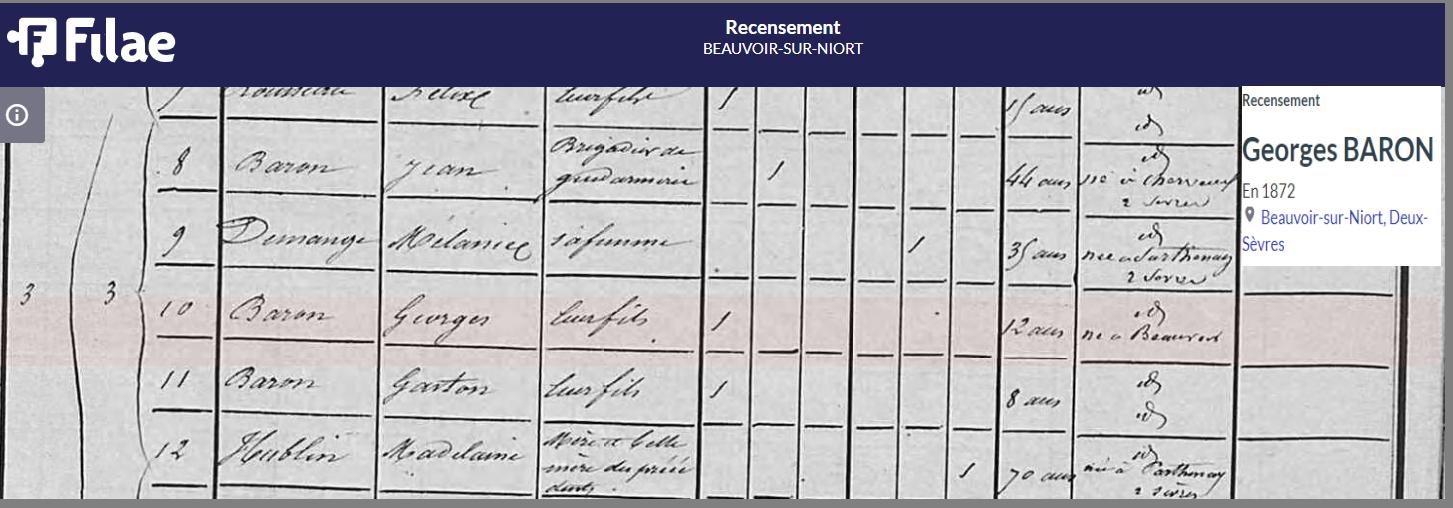 Filae
Recensement
BEAUVOIR-SUR-NIORT
Recensement
Georges BARON
En 1872
Beauvoir-sur-Niort, Deux-
Sèvres
7 Rousseau leur fils 1 15 ans id
id
8 Baron Jean Brigadier de gendarmerie 1 44 ans id
né à Cherveux
2 Sèvres
9 Demange Mélanie sa femme 1 35 ans id
née à Parthenay
2 Sèvres
3 3 10 Baron Georges leur fils 1 12 ans id
né à Beauvoir
11 Baron Gaston leur fils 1 8 ans id
id
12 Hublin Madelaine Mère et belle
mère des précé
dents 1 70 ans id
née à Parthenay
2 Sèvres